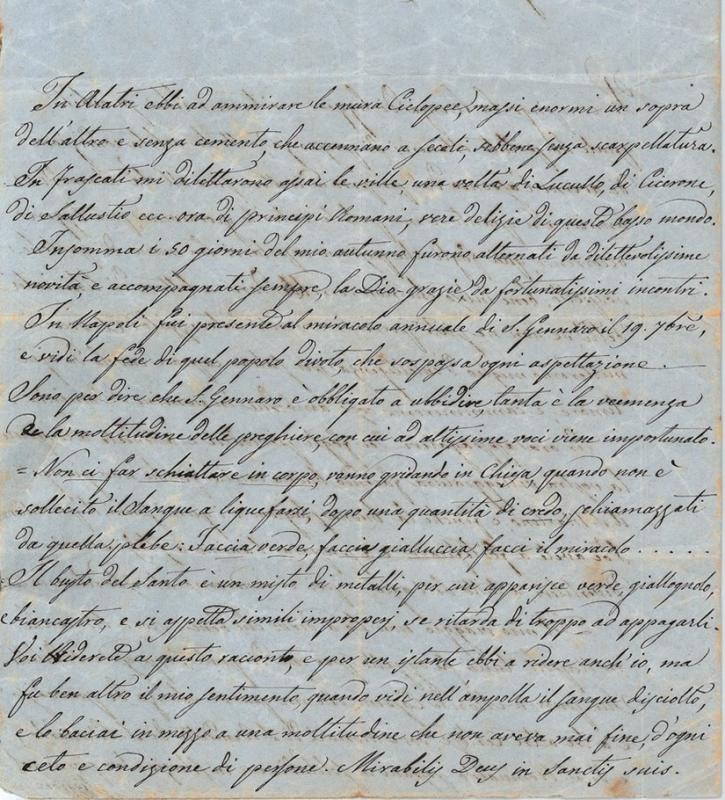 In Alatri ebbi ad ammirare le mura Ciclopee, massi enormi un sopra
dell'altro e senza cemento, che accennano a secoli, sebbene senza scarpellatura.
In Frascati mi dilettarono assai le ville una volta di Lucullo, di Cicerone,
di Sallustio ecc. ora di principi Romani, vere delizie di questo basso mondo.
Insomma i 50 giorni del mio autunno furono alternati da dilettevolissime
novità, e accompagnati sempre, la Dio-grazie da fortunatissimi incontri.
In Napoli fui presente al miracolo annuale di S. Gennaro il 19. 7bre,
e vidi la fede di quel popolo divoto, che sorpassa ogni aspettazione.
Sono per dire che S. Gennaro è obbligato a ubbidire, tanta è la veemenza
e la moltitudine delle preghiere, con cui ad altissime voci viene importunato.
= Non ci far schiattare in corpo, vanno gridando in Chiesa quando non è
sollecito il Sangue a liquefarsi, dopo una quantità di credo, schiamazzati
da quella plebe: Faccia verde, faccia gialluccia, facci il miracolo . . . . . .
Il busto del Santo è un misto di metalli, per cui apparisce verde, giallognolo,
e biancastro, e si aspetta simili improperj, se ritarda di troppo ad appagarli.
Voi riderete a questo racconto, e per un istante ebbi a ridere anch'io, ma
fu ben altro il mio sentimento, quando vidi nell'ampolla il sangue disciolto,
e lo baciai in mezzo a una moltitudine che non aveva mai fine, d'ogni
ceto e condizione di persone. Mirabilis Deus in Sanctis suis.